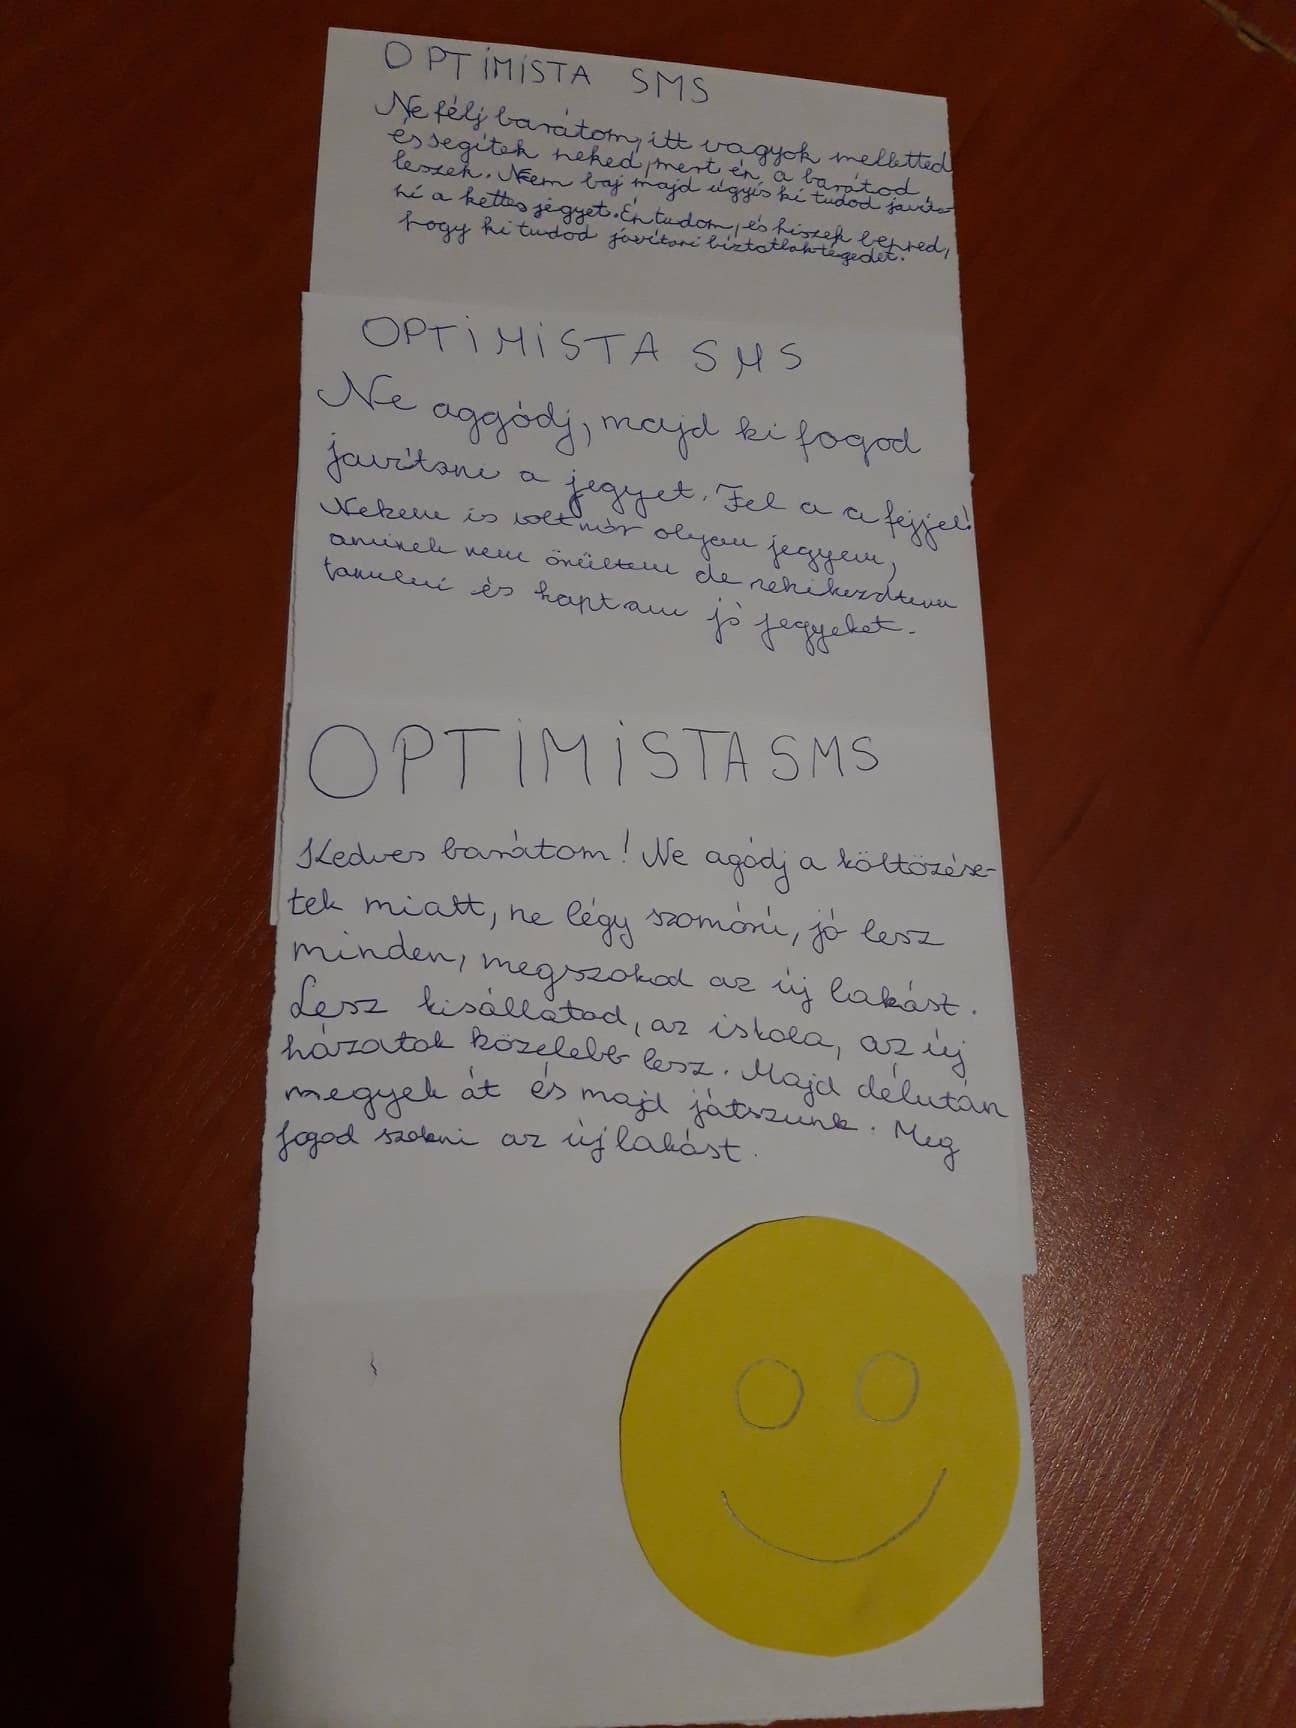 OPTIMISTA SMS
Ne félj barátom, itt vagyok melletted
és segítek neked, mert én a barátod
leszek. Nem baj majd úgyis ki tudod javíta-
ni a kettes jegyet. Én tudom, és hiszek benned,
hogy ki tudod javítani bíztatlak tégedet.
OPTIMISTA SMS
Ne aggódj, majd ki fogod
javítani a jegyet. Fel a a fejjel!
Nekem is volt már olyan jegyem,
aminek nem örültem de nekikezdtem
tanulni és kaptam jó jegyeket.
OPTIMISTA SMS
Kedves barátom! Ne agódj a költözése-
tek miatt, ne légy szomórú, jó lesz
minden, megszokod az új lakást.
Lesz kisállatod, az iskola, az új
házatok közelebb lesz. Majd délután
megyek át és majd játszunk. Meg
fogod szokni az új lakást.